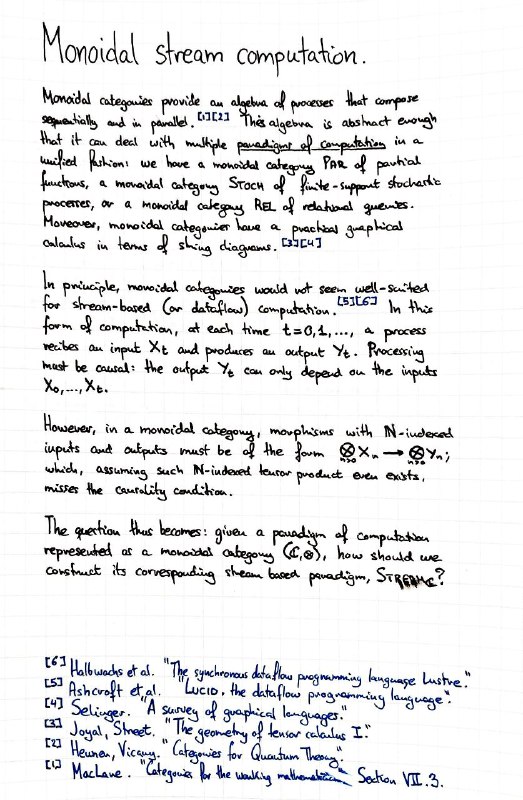 Monoidal stream computation.
Monoidal categories provide an algebra of processes that compose
sequentially and in parallel. [1][2] This algebra is abstract enough
that it can deal with multiple paradigms of computation in a
unified fashion: we have a monoidal category PAR of partial
functions, a monoidal category STOCH of finite-support stochastic
processes, or a monoidal category REL of relational queries.
Moreover, monoidal categories have a practical graphical
calculus in terms of string diagrams. [3][4]
In principle, monoidal categories would not seem well-suited
for stream-based (or dataflow) computation. [5][6] In this
form of computation, at each time t=0,1,..., a process
recibes an input Xt and produces an output Yt. Processing
must be causal: the output Yt can only depend on the inputs
X₀,...,Xt.
However, in a monoidal category, morphisms with ℕ-indexed
inputs and outputs must be of the form ⊗n≥0 Xn → ⊗n≥0 Yn;
which, assuming such ℕ-indexed tensor product even exists,
misses the causality condition.
The question thus becomes: given a paradigm of computation
represented as a monoidal category (ℂ,⊗), how should we
construct its corresponding stream based paradigm, STREAMℂ?
[6] Halbwachs et al. "The synchronous dataflow programming language Lustre."
[5] Ashcroft et al. "LUCID, the dataflow programming language".
[4] Selinger. "A survey of graphical languages."
[3] Joyal, Street. "The geometry of tensor calculus I."
[2] Heunen, Vicary. "Categories for Quantum Theory".
[1] MacLane. "Categories for the working mathematician" Section VII.3.